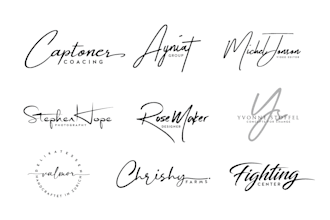 Captoner
COACING
Ayniat
GROUP
Michel Jonson
VIDEO EDITOR
Stepher Hope
PHOTOGRAPHY
Rose Maker
DESIGNER
Yv
YVONNE STOFFEL
valmor
Chrishy
FARMS
Fighting
CENTER